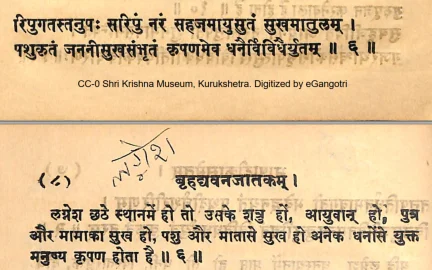 रिपुगतस्तनुपः सरिपुं नरं सहजमायुसुतं सुखमातुलम् ।
पशुकृतं जननीसुखसंभृतं कृपणमेव धनैर्विविधैर्युतम् ॥ ६ ॥
CC-0 Shri Krishna Museum, Kurukshetra. Digitized by eGangotri
लग्नेश
(८) बृहद्यवनजातकम् ।
लग्नेश छठे स्थानमें हो तो उसके शत्रु हों, आयुवान् हो, पुत्र
और मामाका सुख हो, पशु और मातासे सुख हो अनेक धनोंसे युक्त
मनुष्य कृपण होता है ॥ ६ ॥